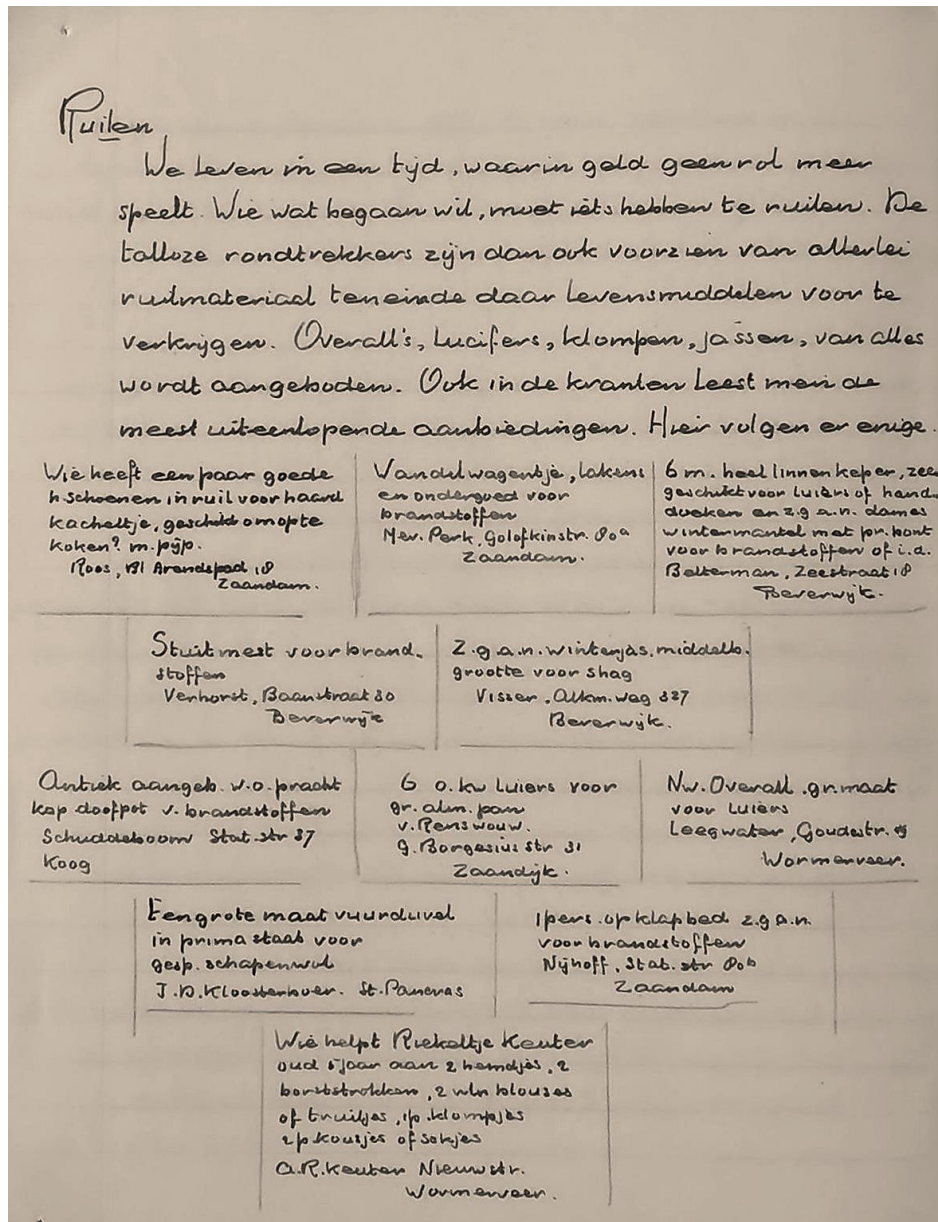 Ruilen
We leven in een tijd, waarin geld geen rol meer
speelt. Wie wat begaan wil, moet iets hebben te ruilen. De
talloze rondtrekkers zijn dan ook voorzien van allerlei
ruilmateriaal teneinde daar levensmiddelen voor te
verkrijgen. Overall's, lucifers, klompen, jassen, van alles
wordt aangeboden. Ook in de kranten leest men de
meest uiteenlopende aanbiedingen. Hier volgen er enige.
Wie heeft een paar goede
h schoenen in ruil voor haard
kacheltje, geschikt om op te
koken? m. pijp.
Roos, Bl Arendspad 18
Zaandam.
Wandelwagentje, lakens
en ondergoed voor
brandstoffen
Mev. Perk, Golofkinstr. 80a
Zaandam.
6 m. heel linnen keper, zee
geschikt voor luiers of hand-
doeken en z.g.a.n. dames
wintermantel met pr. bont
voor brandstoffen of i.d.
Belterman, Zeestraat 18
Beverwijk.
Stuitmest voor brand-
stoffen
Verhorst, Baanstraat 30
Beverwijk
Z.g.a.n. winterjas, middelb.
grootte voor shag
Visser, Alkm. weg 327
Beverwijk.
Antiek aangeb. w.o. pracht
kop doofpot v. brandstoffen
Schuddeboom Stat. str 37
Koog
6 o. kw luiers voor
gr. alm. pan
v. Renswouw.
g. Borgesius str 31
Zaandijk.
Nw. Overall. gr. maat
voor luiers
Leegwater, Goudastr.
Wormerveer.
Een grote maat vuurduvel
in prima staat voor
gesp. schapenwol
J. D. Kloosterboer. St. Pancras
1 pers. opklapbed z.g.a.n.
voor brandstoffen
Nijhoff, Stat. str 80b
Zaandam
Wie helpt Riekeltje Keuter
oud 5 jaar aan 2 hemdjes, 2
borststrokken, 2 wln blouses
of truitjes, 1p. klompjes
2p kousjes of sokjes
A.R. Keuter Nieuwstr.
Wormerveer.